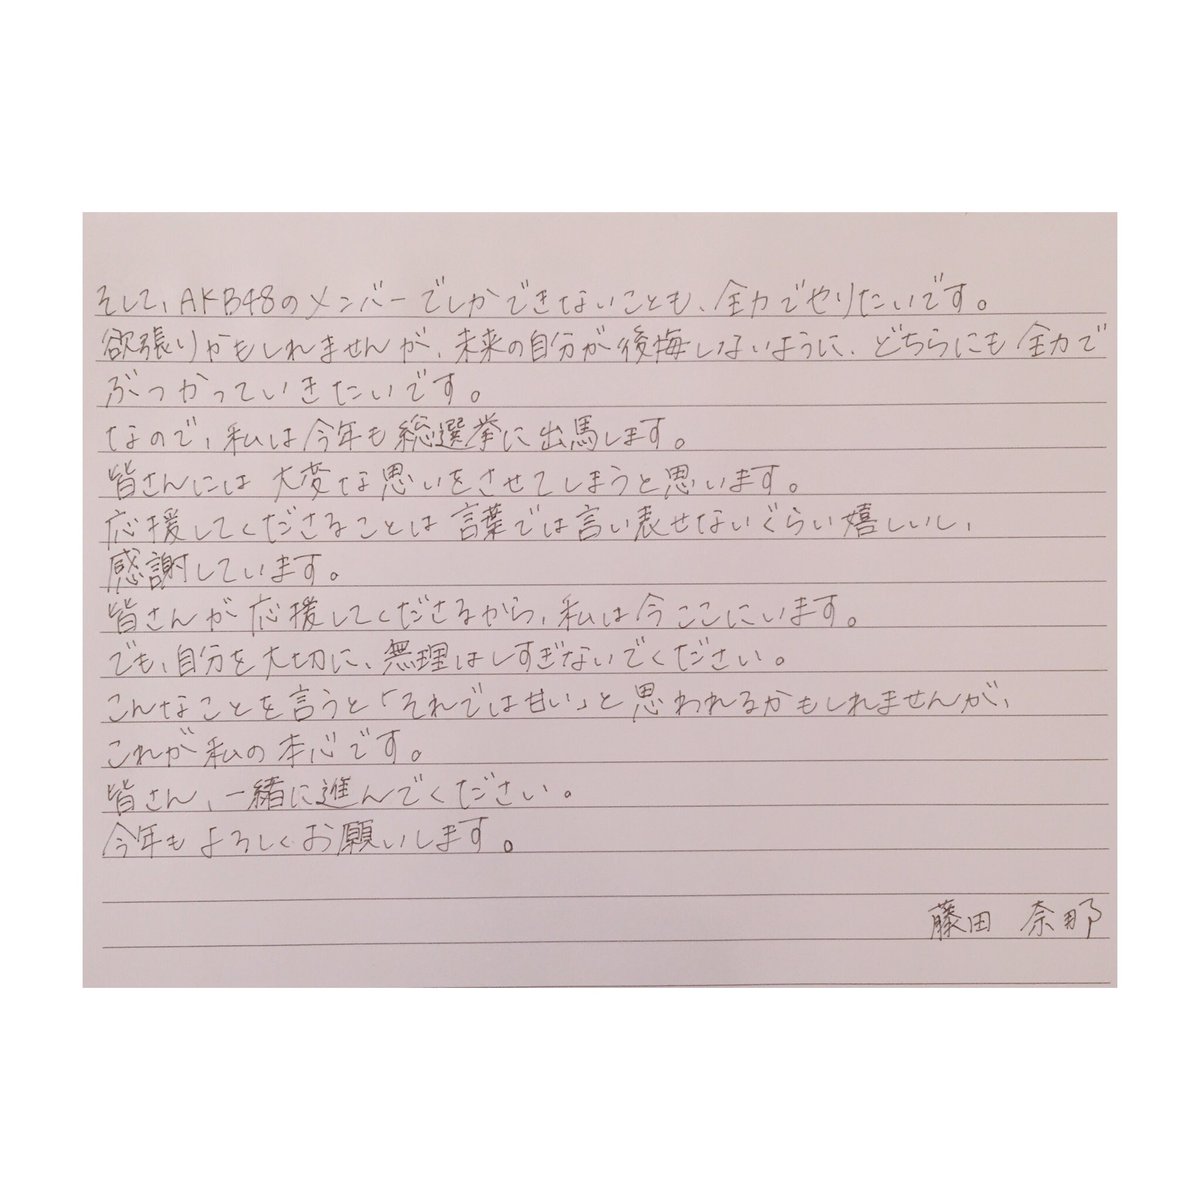 そして、AKB48のメンバーでしかできないことも、全力でやりたいです。
欲張りかもしれませんが、未来の自分が後悔しないように、どちらにも全力で
ぶつかっていきたいです。
なので、私は今年も総選挙に出馬します。
皆さんには大変な思いをさせてしまうと思います。
応援してくださることは言葉では言い表せないぐらい嬉しいし、
感謝しています。
皆さんが応援してくださるから、私は今ここにいます。
でも、自分を大切に、無理はしすぎないでください。
こんなことを言うと「それでは甘い」と思われるかもしれませんが、
これが私の本心です。
皆さん、一緒に進んでください。
今年もよろしくお願いします。
藤田 奈那